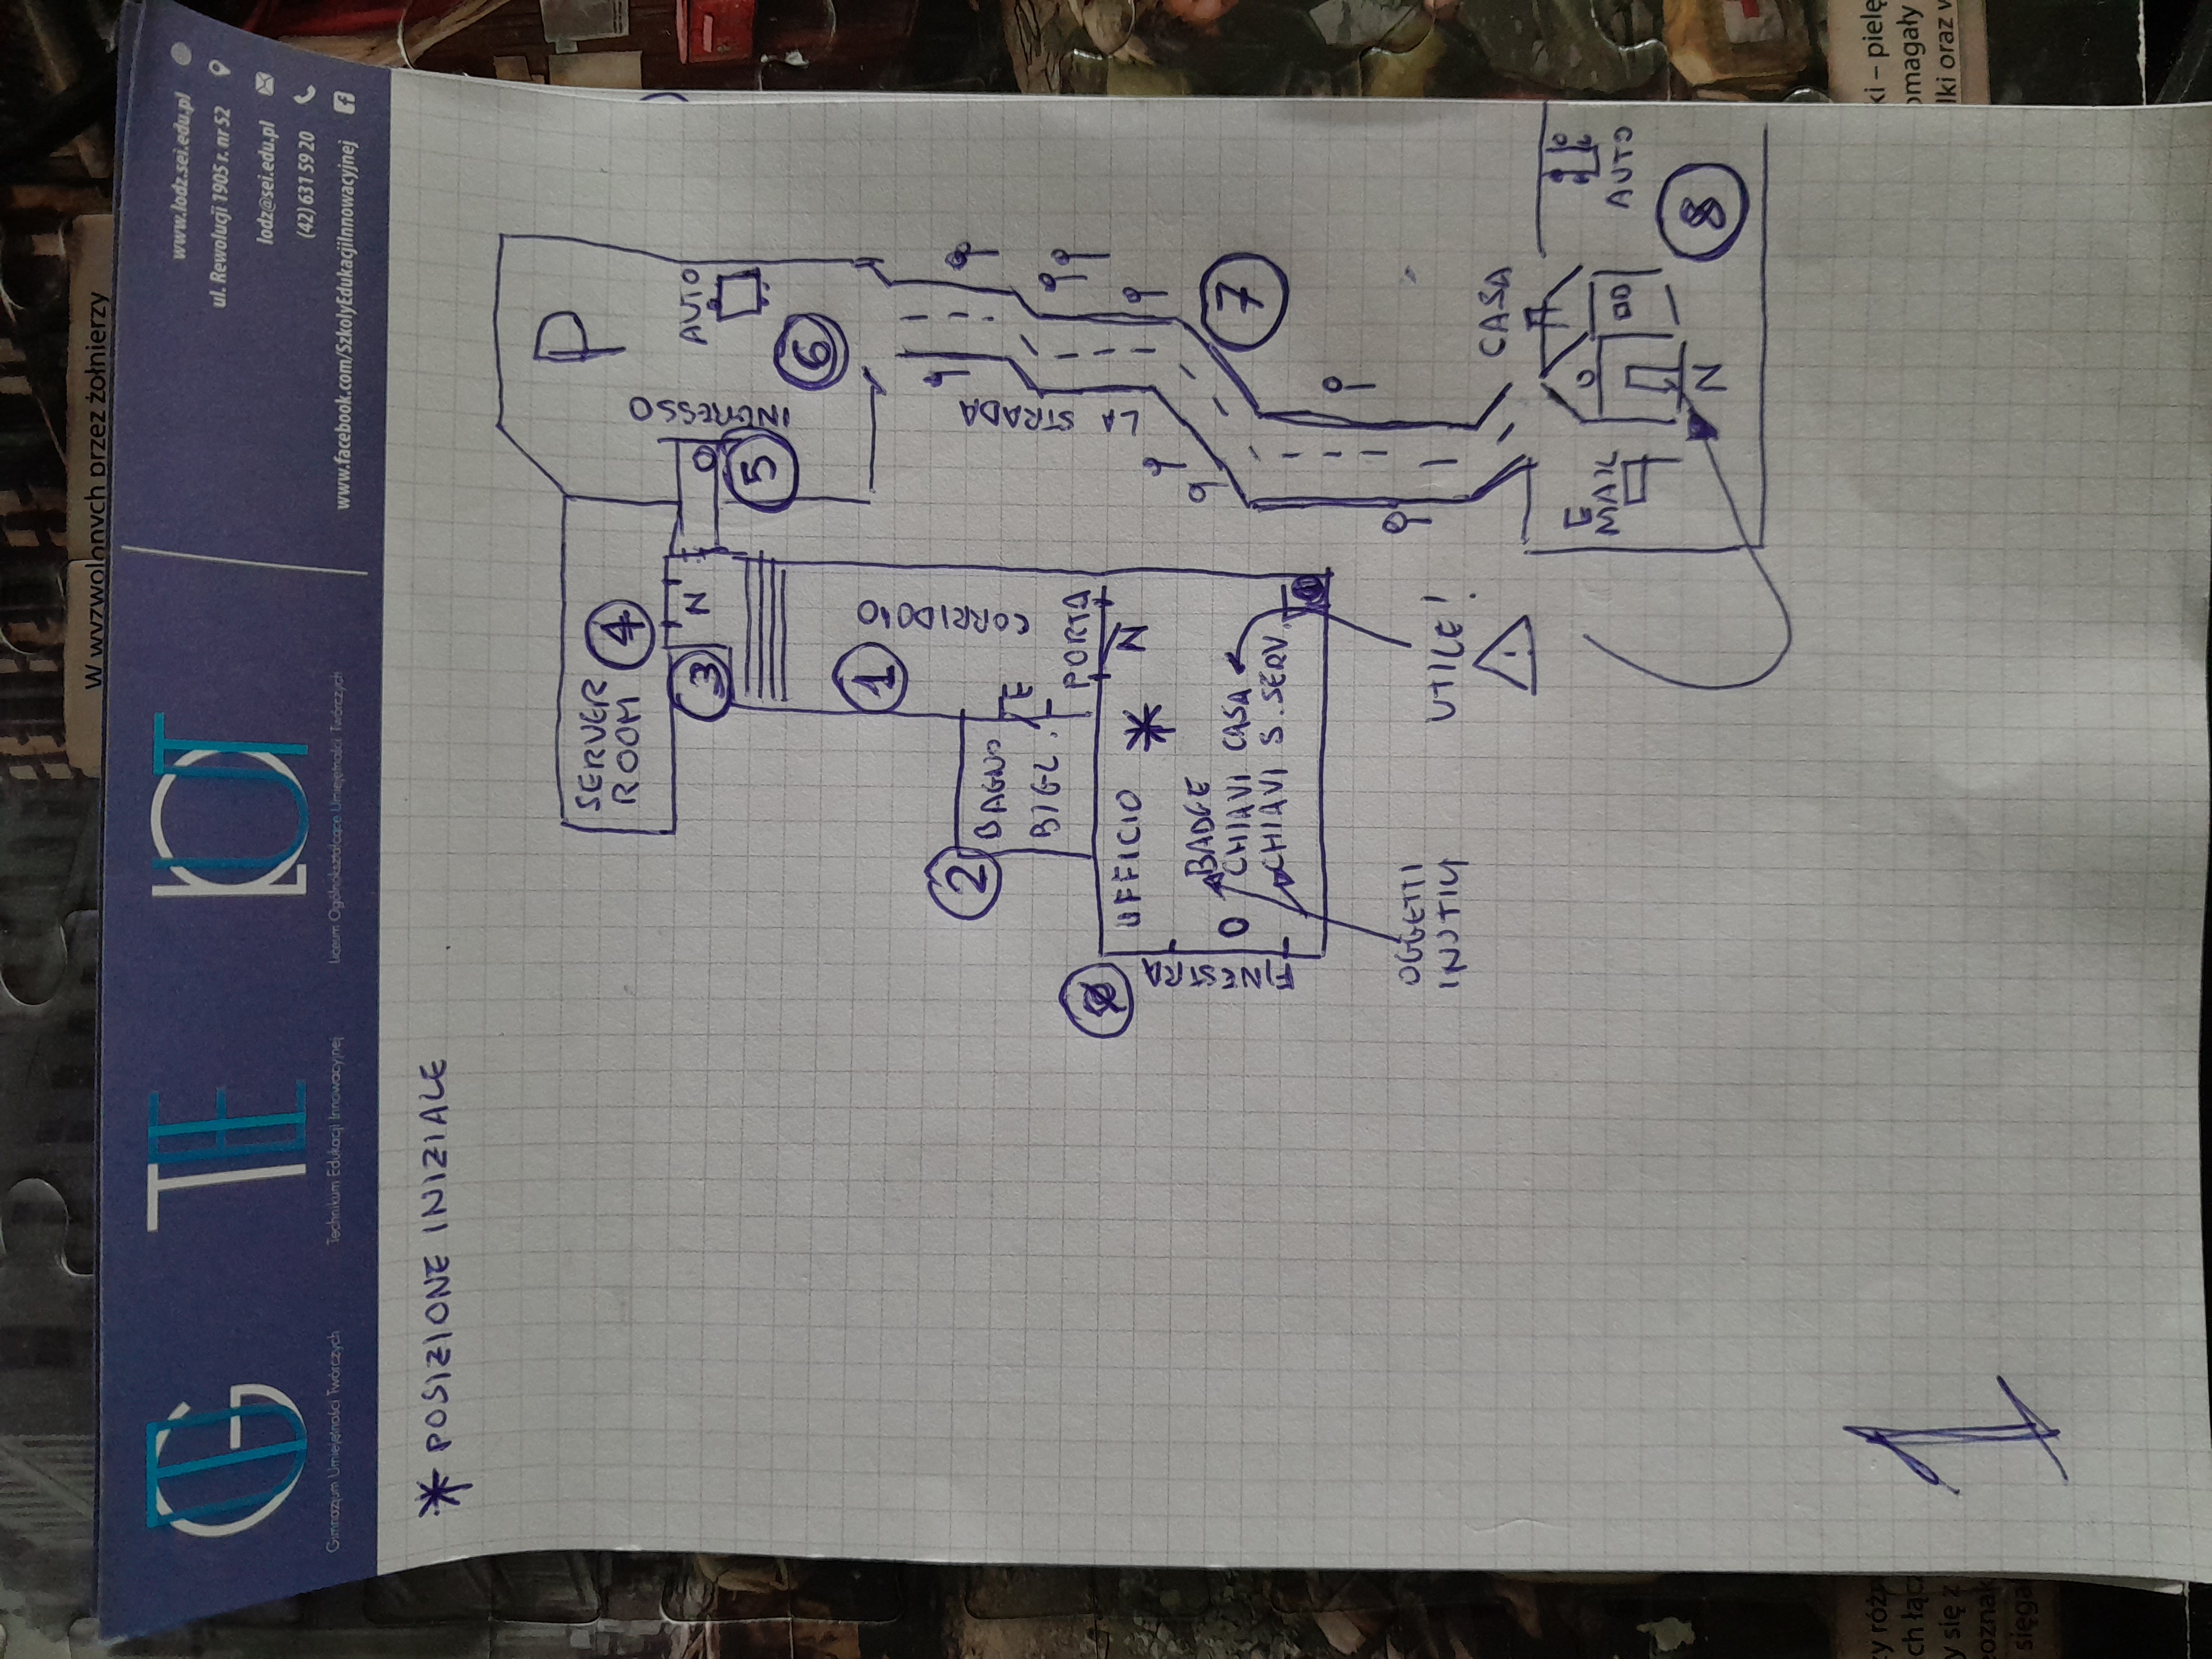 W wyzwolonych przez żołnierzy
GUT
TEI
LOUT
Gimnazjum Umiejętności Twórczych
Technikum Edukacji Innowacyjnej
Liceum Ogólnokształcące Umiejętności Twórczych
www.lodz.sei.edu.pl
ul. Rewolucji 1905 r. nr 52
lodz@sei.edu.pl
(42) 631 59 20
www.facebook.com/SzkolyEdukacjiInnowacyjnej
* POSIZIONE INIZIALE
P
SERVER
ROOM
4
3
N
O
INGRESSO
AUTO
5
6
1
CORRIDOIO
2
BAGNO
BIGL.
E
PORTA
LA STRADA
UFFICIO
*
N
FINESTRA
O
BADGE
CHIAVI CASA
CHIAVI S. SERV.
7
OGGETTI
INUTILI
UTILE!
!
CASA
E
AUTO
N
8
1
zy róż
ch łąc
y się z
eoznak
sięga
ki – pielę
omagały
lki oraz w